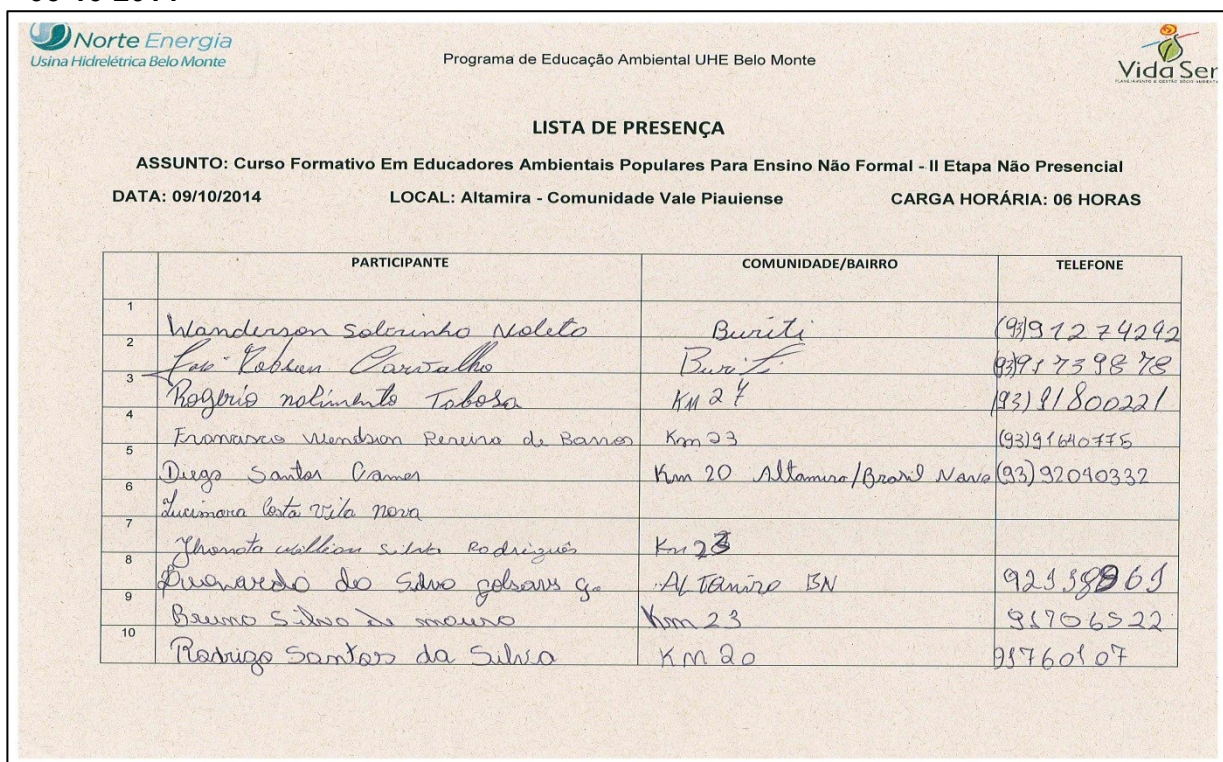 Norte Energia
Usina Hidrelétrica Belo Monte
Programa de Educação Ambiental UHE Belo Monte
Vida Ser
LISTA DE PRESENÇA
ASSUNTO: Curso Formativo Em Educadores Ambientais Populares Para Ensino Não Formal - II Etapa Não Presencial
DATA: 09/10/2014 LOCAL: Altamira - Comunidade Vale Piauiense CARGA HORÁRIA: 06 HORAS
PARTICIPANTE COMUNIDADE/BAIRRO TELEFONE
1 Wanderson Sobrinho Noleto Buriti (93)91274292
2 Robson Carvalho Buriti (93)91739878
3 Rogério Tabosa KM 27 (93)91800221
4 Pereira de Barros Km 23 (93)91640775
5 Diego Santos Km 20 Altamira/Brasil Novo (93)92040332
6 Lucimara Costa Vila Nova
7 Jhonata willian silva Rodrigues Km 23
8 do BN
9 Bruno Silva de Km 23 91706522
10 Rodrigo Santos da Silva KM 20 91760107